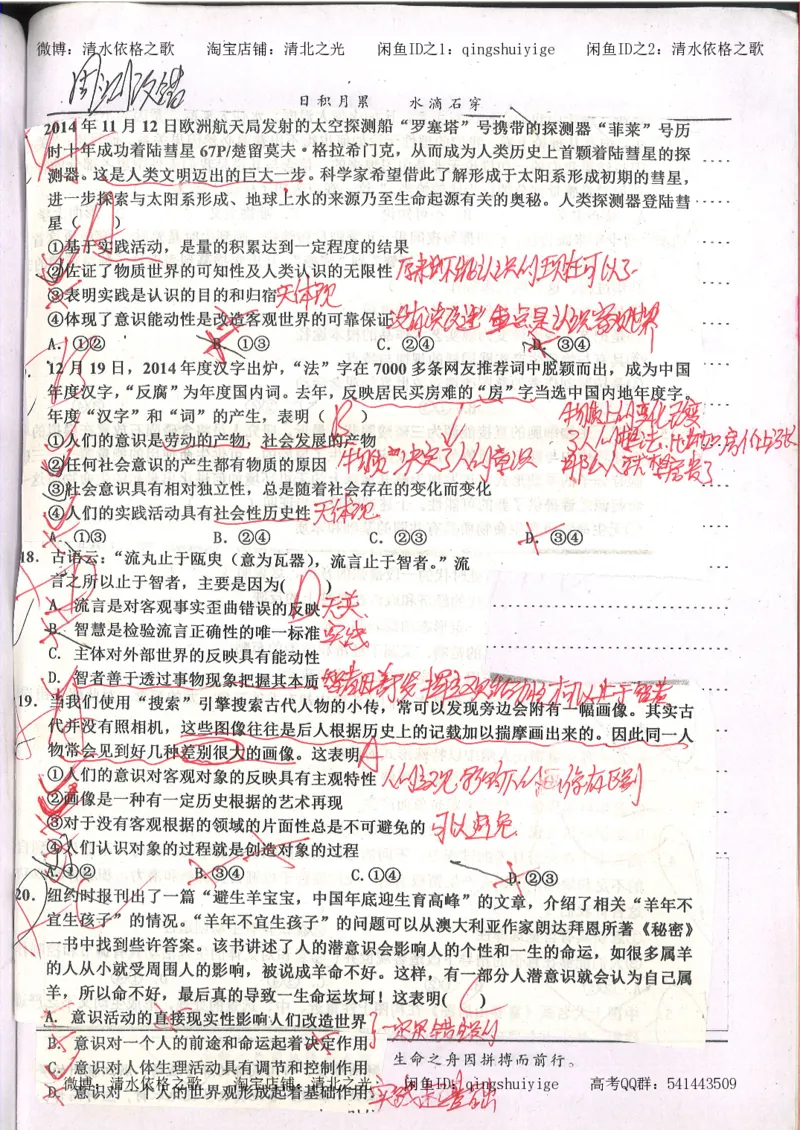 微博：清水依格之歌　淘宝店铺：清北之光　闲鱼ID之1：qingshuiyige　闲鱼ID之2：清水依格之歌
周测改错
日积月累　水滴石穿
2014年11月12日欧洲航天局发射的太空探测船“罗塞塔”号携带的探测器“菲莱”号历
时十年成功着陆彗星67P/楚留莫夫·格拉希门克，从而成为人类历史上首颗着陆彗星的探
测器。这是人类文明迈出的巨大一步。科学家希望借此了解形成于太阳系形成初期的彗星，
进一步探索与太阳系形成、地球上水的来源乃至生命起源有关的奥秘。人类探测器登陆彗
星（　　）
①基于实践活动，是量的积累达到一定程度的结果
②佐证了物质世界的可知性及人类认识的无限性 原来不能认识的现在可以了
③表明实践是认识的目的和归宿 无体现
④体现了意识能动性是改造客观世界的可靠保证 没有谈改造 重点是认识客观世界
A．①②　B．①③　C．②④　D．③④
12月19日，2014年度汉字出炉，“法”字在7000多条网友推荐词中脱颖而出，成为中国
年度汉字，“反腐”为年度国内词。去年，反映居民买房难的“房”字当选中国内地年度字。
年度“汉字”和“词”的产生，表明（ B ）
①人们的意识是劳动的产物，社会发展的产物
②任何社会意识的产生都有物质的原因 物质决定了人们的意识
③社会意识具有相对独立性，总是随着社会存在的变化而变化
④人们的实践活动具有社会性历史性 无体现
A．①③　B．②④　C．②③　D．③④
18．古语云：“流丸止于瓯臾（意为瓦器），流言止于智者。”流
言之所以止于智者，主要是因为（ D ）
A．流言是对客观事实歪曲错误的反映 无关
B．智慧是检验流言正确性的唯一标准 实践
C．主体对外部世界的反映具有能动性
D．智者善于透过事物现象把握其本质
19．当我们使用“搜索”引擎搜索古代人物的小传，常可以发现旁边会附有一幅画像。其实古
代并没有照相机，这些图像往往是后人根据历史上的记载加以揣摩画出来的。因此同一人
物常会见到好几种差别很大的画像。这表明 A
①人们的意识对客观对象的反映具有主观特性
②画像是一种有一定历史根据的艺术再现
③对于没有客观根据的领域的片面性总是不可避免的 可以避免
④人们认识对象的过程就是创造对象的过程
A．①②　B．③④　C．①④　D．②③
20．纽约时报刊出了一篇“避生羊宝宝，中国年底迎生育高峰”的文章，介绍了相关“羊年不
宜生孩子”的情况。“羊年不宜生孩子”的问题可以从澳大利亚作家朗达拜恩所著《秘密》
一书中找到些许答案。该书讲述了人的潜意识会影响人的个性和一生的命运，如很多属羊
的人从小就受周围人的影响，被说成羊命不好。这样，有一部分人潜意识就会认为自己属
羊，所以命不好，最后真的导致一生命运坎坷！这表明（ C ）
A．意识活动的直接现实性影响人们改造世界
B．意识对一个人的前途和命运起着决定作用
生命之舟因拼搏而前行。
C．意识对人体生理活动具有调节和控制作用
微博：清水依格之歌　淘宝店铺：清北之光　闲鱼ID：qingshuiyige　高考QQ群：541443509
D．意识对一个人的世界观形成起着基础作用 实践是基础